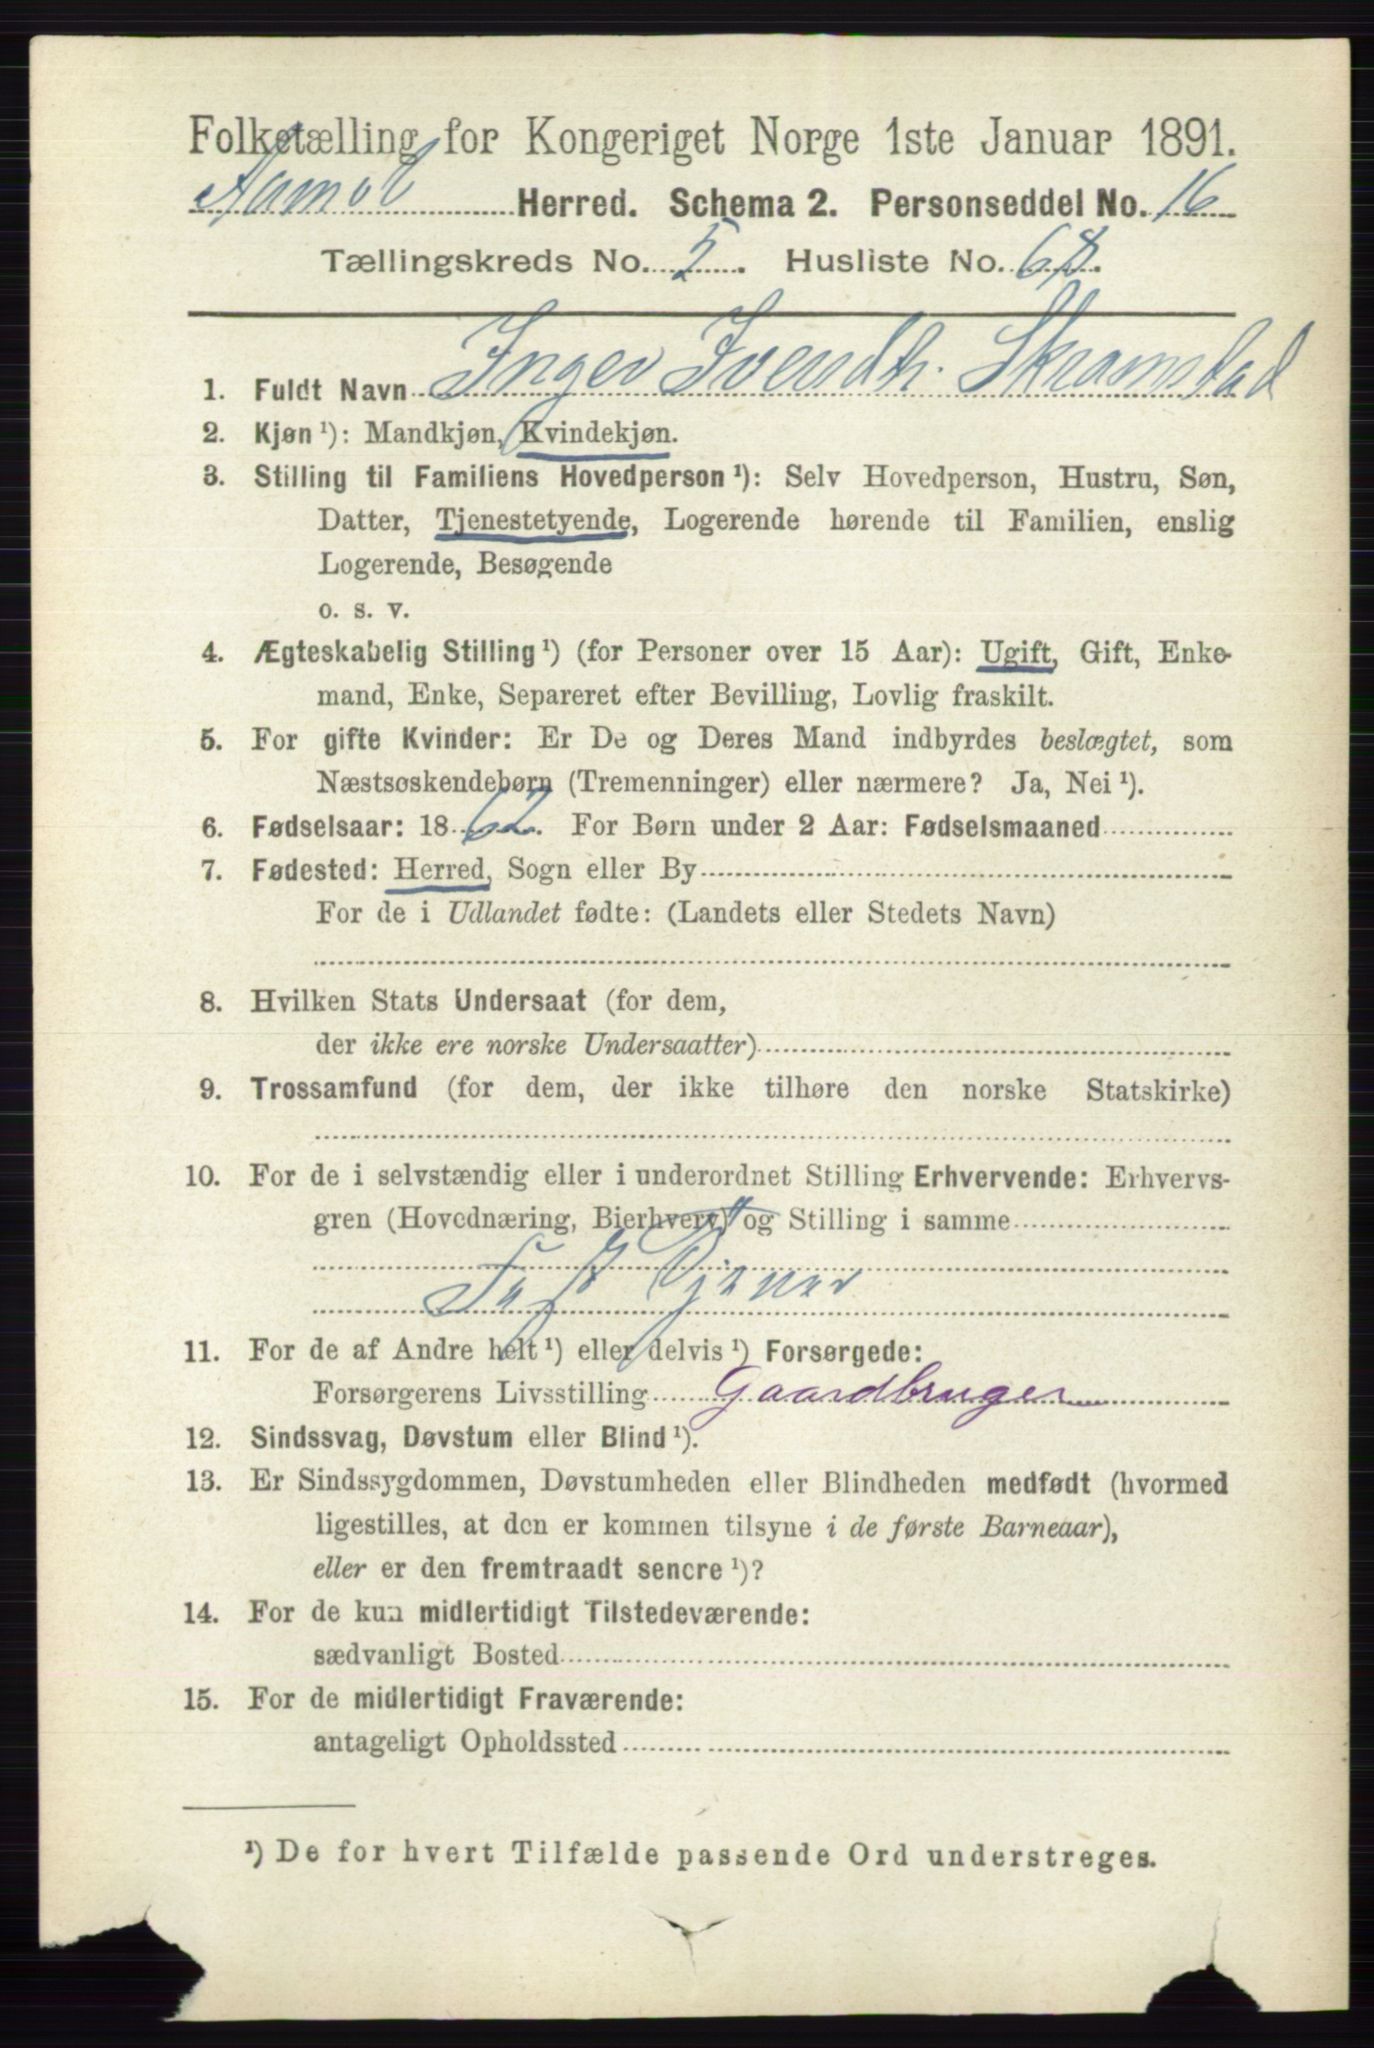 Folketælling for Kongeriget Norge 1ste Januar 1891.
Aamot Herred. Schema 2. Personseddel No. 16
Tællingskreds No. 5. Husliste No. 68.
1. Fuldt Navn Inger Ivendtr. Skramstad
2. Kjøn ¹): Mandkjøn, Kvindekjøn.
3. Stilling til Familiens Hovedperson ¹): Selv Hovedperson, Hustru, Søn,
Datter, Tjenestetyende, Logerende hørende til Familien, enslig
Logerende, Besøgende
o. s. v.
4. Ægteskabelig Stilling ¹) (for Personer over 15 Aar): Ugift, Gift, Enke-
mand, Enke, Separeret efter Bevilling, Lovlig fraskilt.
5. For gifte Kvinder: Er De og Deres Mand indbyrdes beslægtet, som
Næstsøskendebørn (Tremenninger) eller nærmere? Ja, Nei ¹).
6. Fødselsaar: 1862. For Børn under 2 Aar: Fødselsmaaned
7. Fødested: Herred, Sogn eller By
For de i Udlandet fødte: (Landets eller Stedets Navn)
8. Hvilken Stats Undersaat (for dem,
der ikke ere norske Undersaatter)
9. Trossamfund (for dem, der ikke tilhøre den norske Statskirke)
10. For de i selvstændig eller i underordnet Stilling Erhvervende: Erhvervs-
gren (Hovednæring, Bierhverv) og Stilling i samme
Fast Tjener
11. For de af Andre helt ¹) eller delvis ¹) Forsørgede:
Forsørgerens Livsstilling Gaardbruger
12. Sindssvag, Døvstum eller Blind ¹).
13. Er Sindssygdommen, Døvstumheden eller Blindheden medfødt (hvormed
ligestilles, at den er kommen tilsyne i de første Barneaar),
eller er den fremtraadt senere ¹)?
14. For de kun midlertidigt Tilstedeværende:
sædvanligt Bosted
15. For de midlertidigt Fraværende:
antageligt Opholdssted
¹) De for hvert Tilfælde passende Ord understreges.